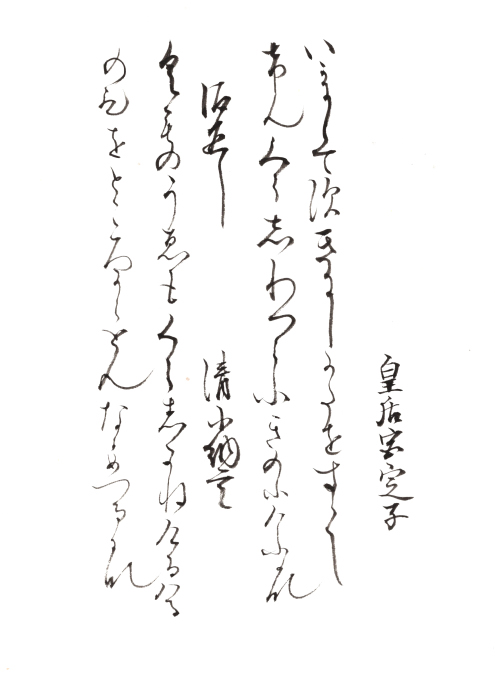 皇后宮定子
いかにしてすきにしかたをすくし
けんくらしわつらふきのふけふかな
御返し 清少納言
くものうゑもくらしかねけるはる
のひをところからともなかめつるかな